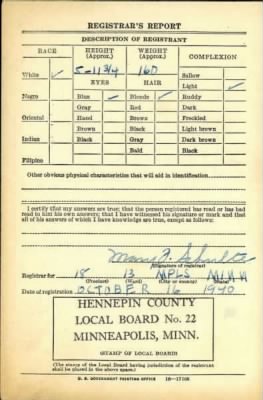 REGISTRAR'S REPORT
DESCRIPTION OF REGISTRANT
RACE HEIGHT (Approx.) WEIGHT (Approx.) COMPLEXION
White ✓ 5-11 3/4 160 Sallow
EYES HAIR Light ✓
Negro Blue ✓ Blonde ✓ Ruddy
Gray Red Dark
Oriental Hazel Brown Freckled
Brown Black Light brown
Indian Black Gray Dark brown
Bald Black
Filipino
Other obvious physical characteristics that will aid in identification
I certify that my answers are true; that the person registered has read or has had
read to him his own answers; that I have witnessed his signature or mark and that
all of his answers of which I have knowledge are true, except as follows:
Schultz
(Signature of registrar)
Registrar for 18 13 MPLS MINN
(Precinct) (Ward) (City or county) (State)
Date of registration OCTOBER 16 1940
HENNEPIN COUNTY
LOCAL BOARD No. 22
MINNEAPOLIS, MINN.
(STAMP OF LOCAL BOARD)
(The stamp of the Local Board having jurisdiction of the registrant
shall be placed in the above space.)
U. S. GOVERNMENT PRINTING OFFICE